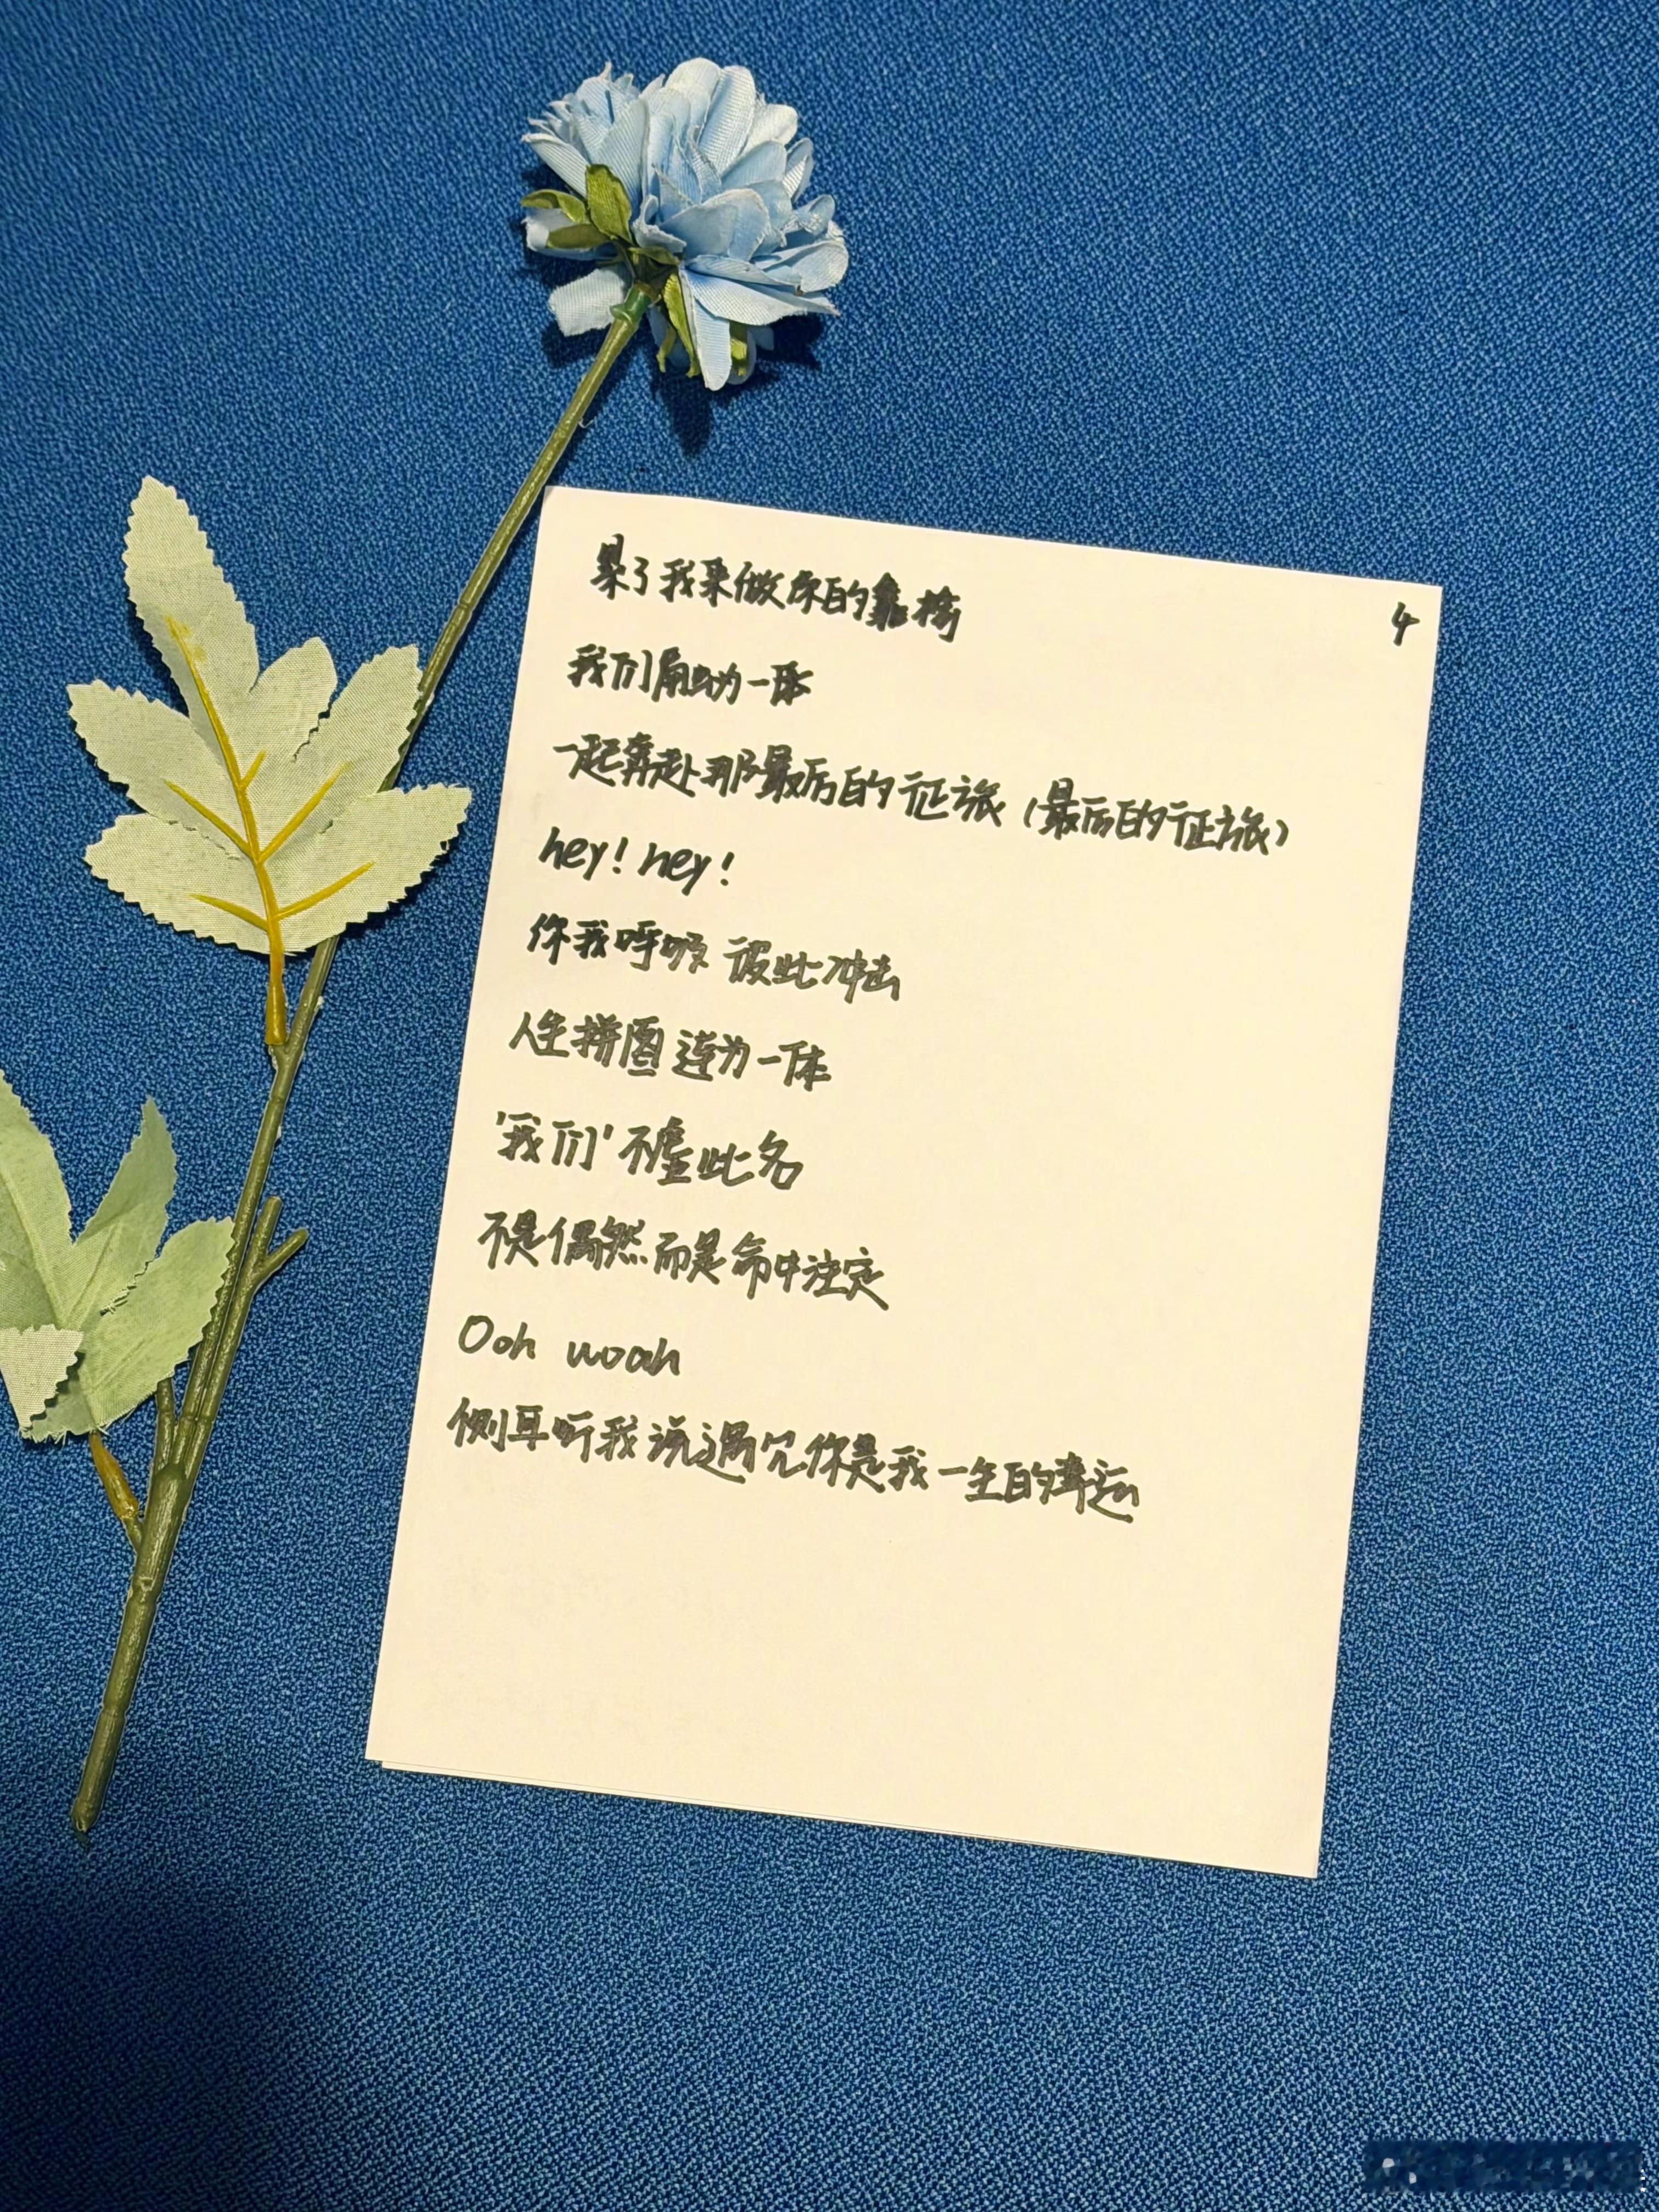 累了我来做你的靠椅
4
我们角色为一体
一起奔赴那最后的征旅(最后的征旅)
hey! hey!
你我呼吸 彼此冲击
人生拼圖 连为一体
'我们'不虚此名
不是偶然而是命中注定
Ooh woah
侧耳听我说遇见你是我一生的幸运